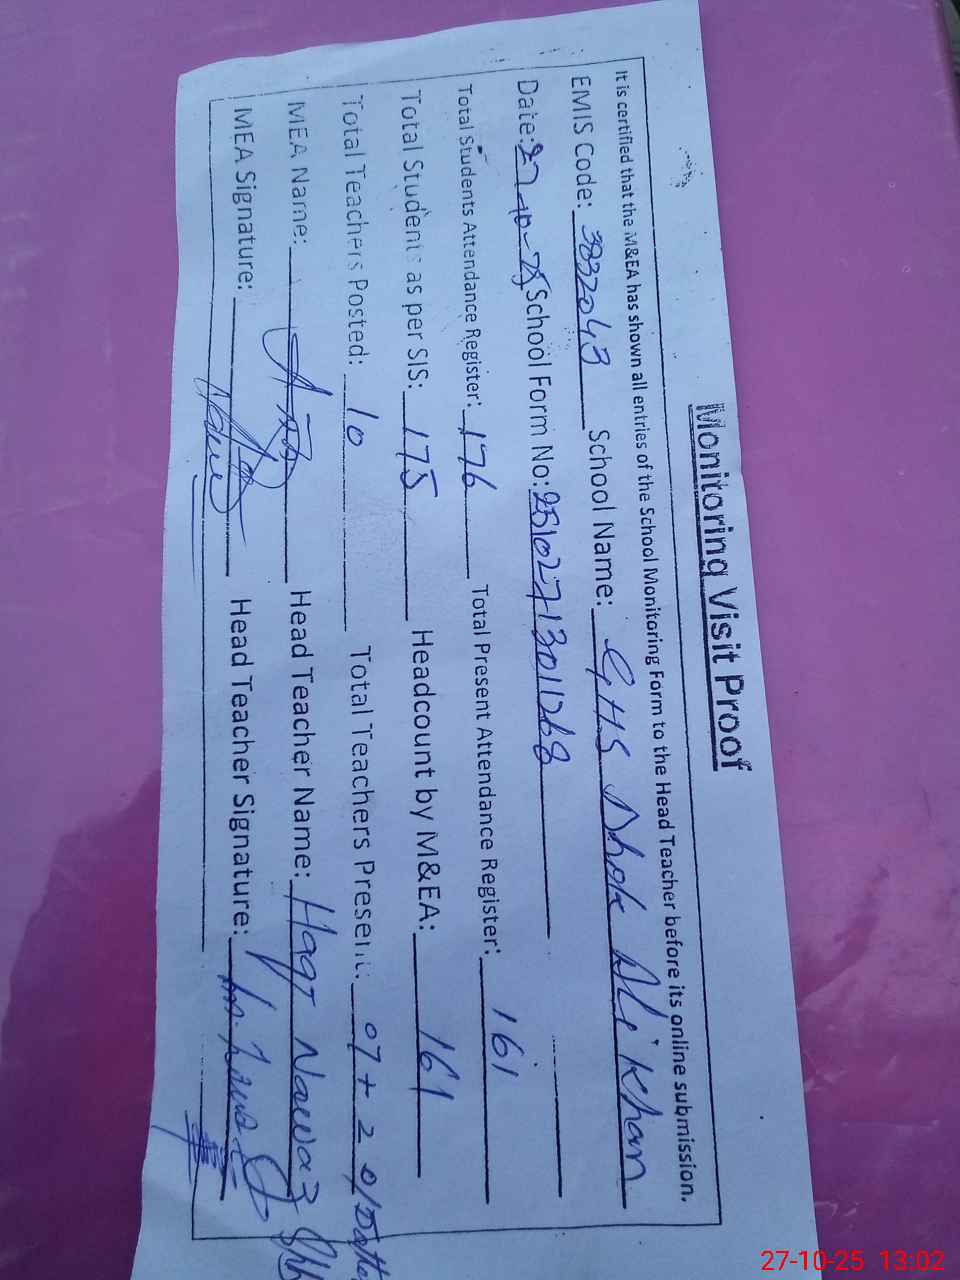 Monitoring Visit Proof
It is certified that the M&EA has shown all entries of the School Monitoring Form to the Head Teacher before its online submission.
EMIS Code: 3832043 School Name: GHS Dhok Ali Khan
Date: 27-10-25 School Form No: 25102713011268
Total Students Attendance Register: 176 Total Present Attendance Register: 161
Total Students as per SIS: 175 Headcount by M&EA: 161
Total Teachers Posted: 10 Total Teachers Present: 07+2 o/
MEA Name: Head Teacher Name: Haqr Nawaz
MEA Signature: Head Teacher Signature:
27-10-25 13:02